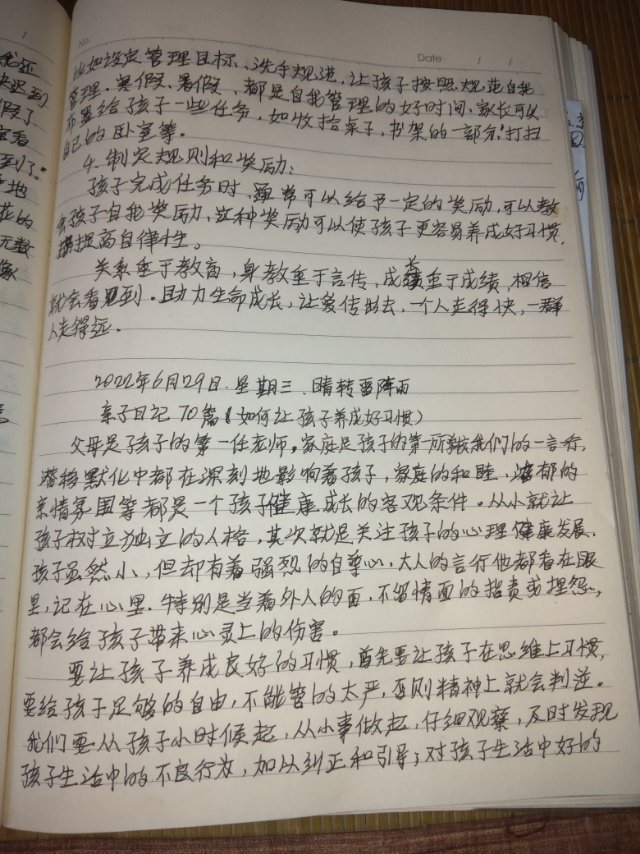 No.
Date / /
比如设定管理目标、洗手规范，让孩子按照规范自我
管理。寒假、暑假、都是自我管理的好时间，家长可以
布置给孩子一些任务，如收拾桌子，书架的一部分，打扫
自己的卧室等。
4. 制定规则和奖励：
孩子完成任务时，通常可以给予一定的奖励，可以教
会孩子自我奖励，这种奖励可以使孩子更容易养成好习惯，
提高自律性。
关系重于教育，身教重于言传，成长重于成绩，相信
就会看见到。助力生命成长，让爱传出去，一个人走得快，一群
人走得远。
2022年6月29日．星期三．晴转雷阵雨
亲子日记70篇（如何让孩子养成好习惯）
父母是孩子的第一任老师。家庭是孩子的第一所学校我们的一言一行，
潜移默化中都在深刻地影响着孩子，家庭的和睦，浓郁的
亲情氛围等都是一个孩子健康成长的客观条件。从小就让
孩子树立独立的人格，其次就是关注孩子的心理健康发展．
孩子虽然小，但却有着强烈的自尊心，大人的言行他都看在眼
里，记在心里．特别是当着外人的面，不留情面的指责或埋怨，
都会给孩子带来心灵上的伤害。
要让孩子养成良好的习惯，首先要让孩子在思维上习惯，
要给孩子足够的自由，不能管的太严，否则精神上就会判逆。
我们要从孩子小时候起，从小事做起，仔细观察，及时发现
孩子生活中的不良行为，加以纠正和引导；对孩子生活中好的